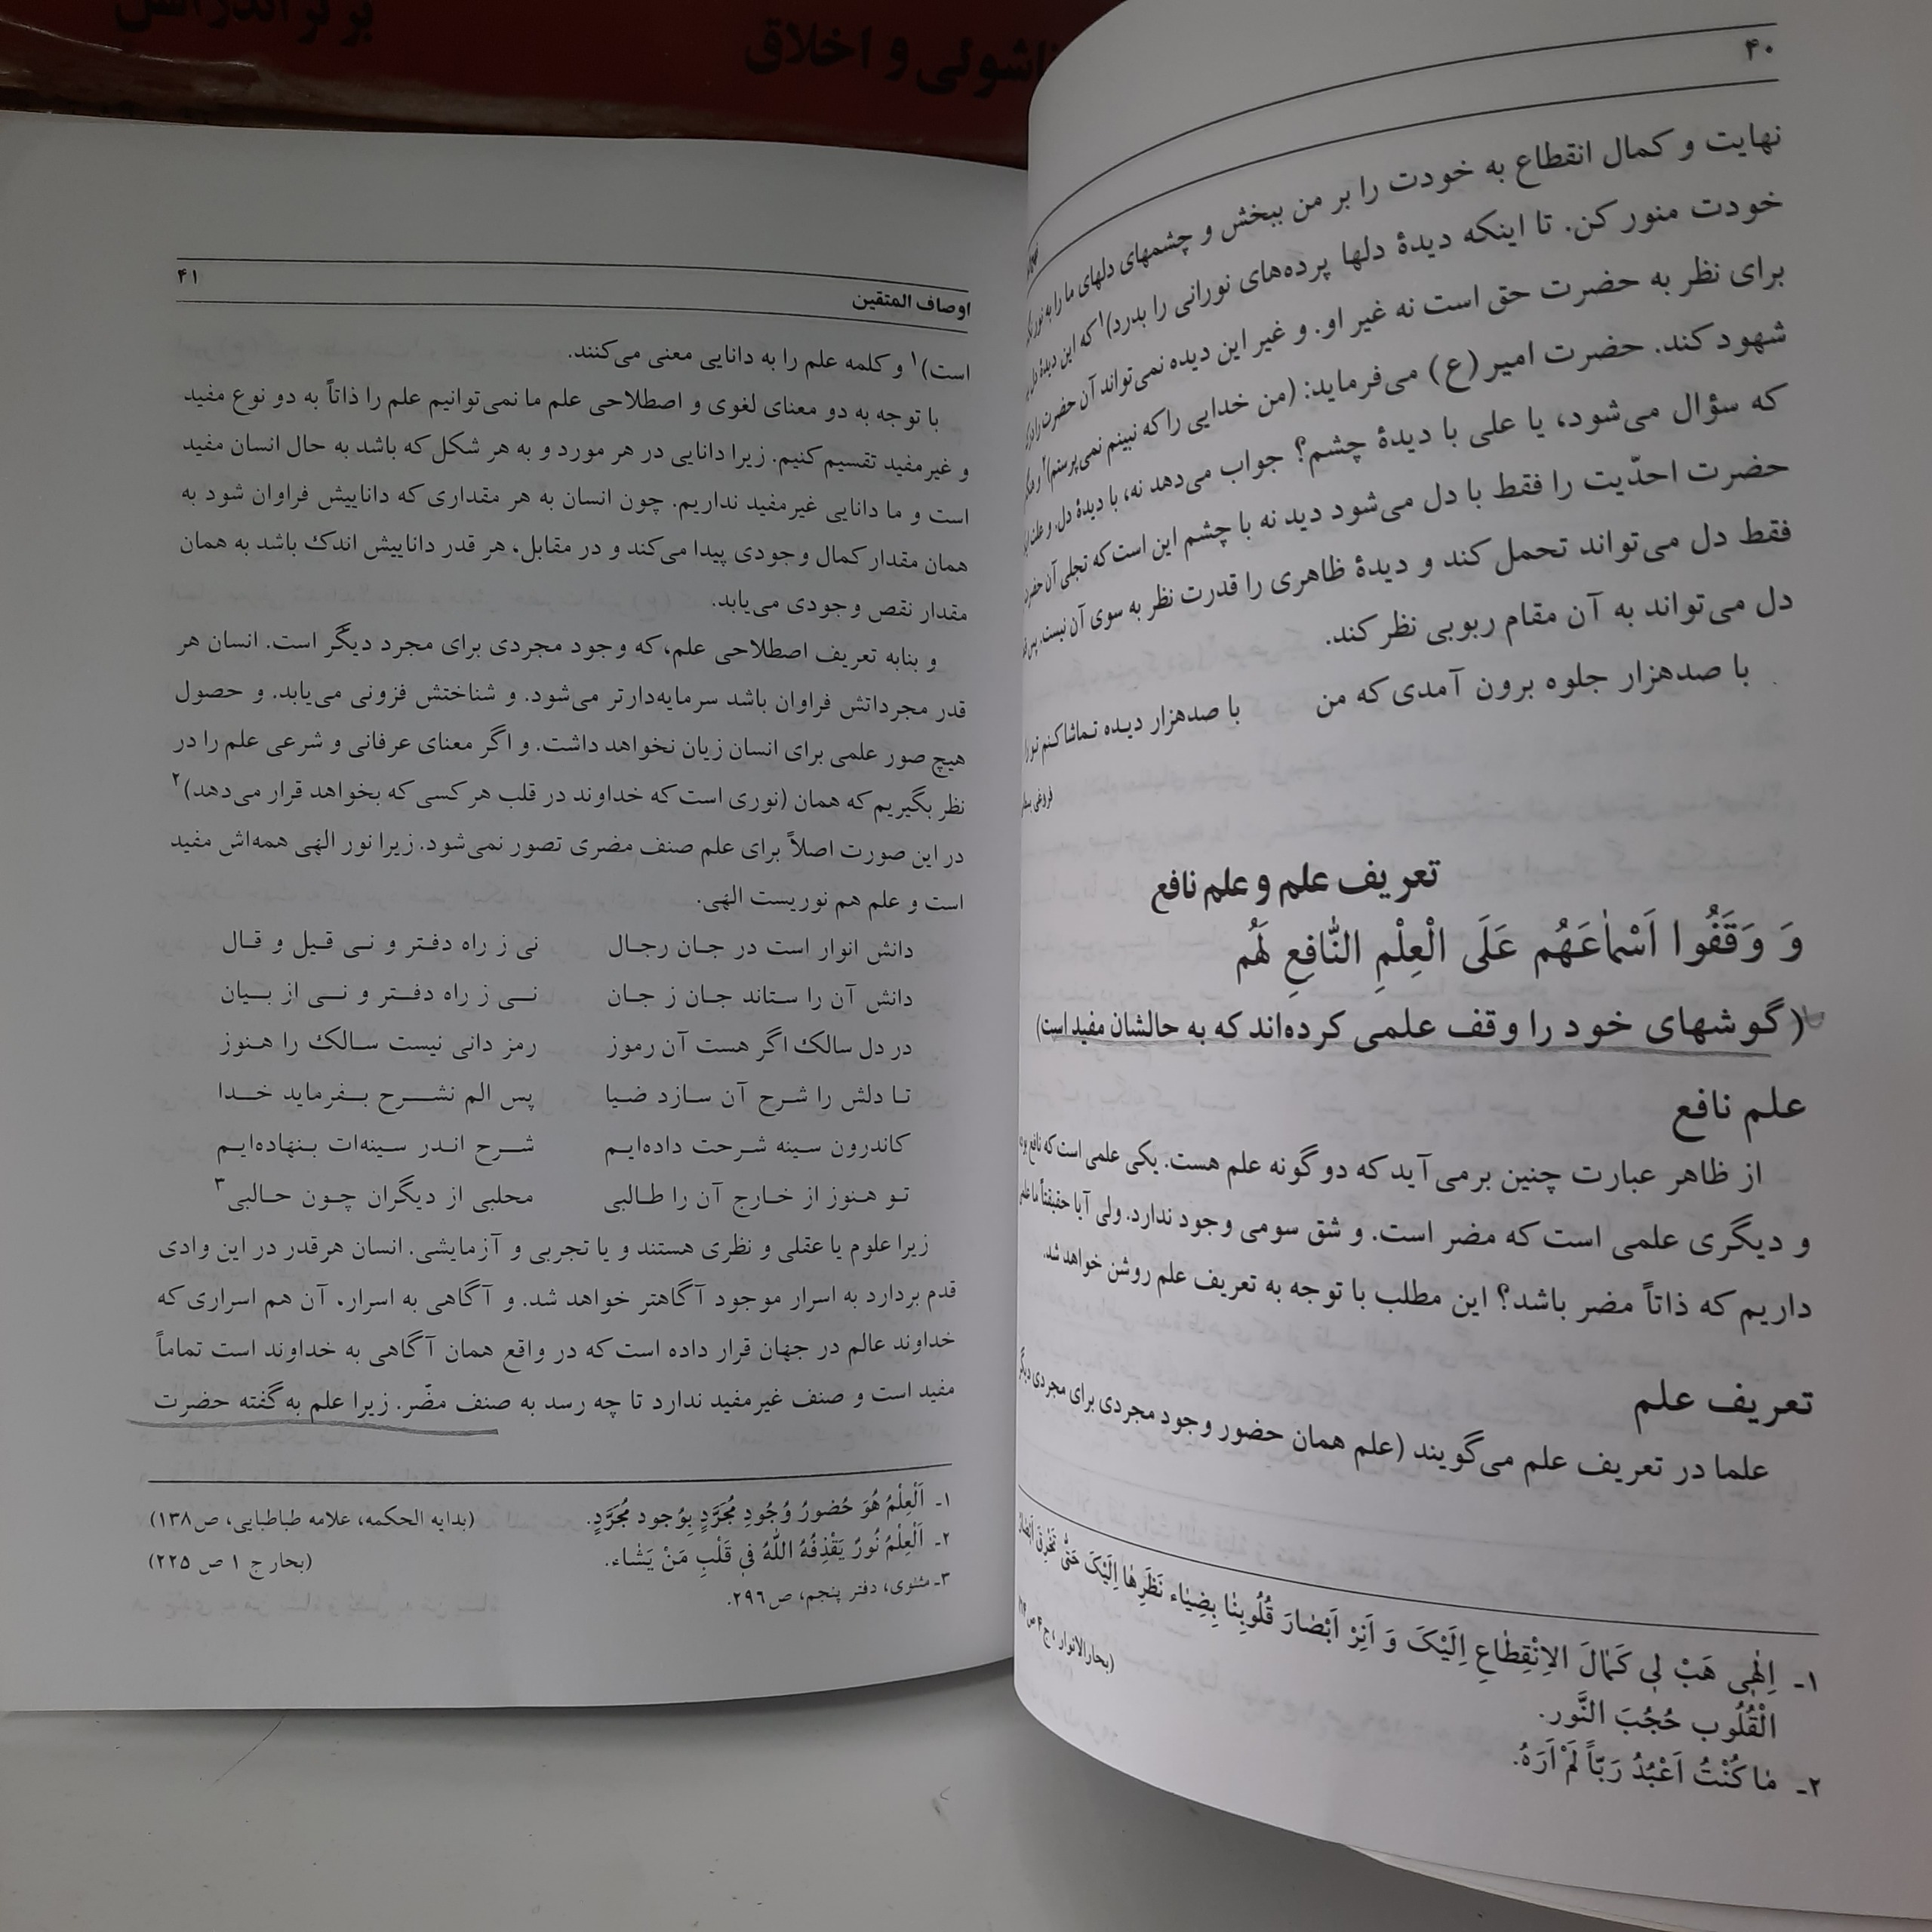 ناشوئی و اخلاق
۴۰
نهایت و کمال انقطاع به خودت را بر من ببخش و چشمهای دلهای ما را به نور
خودت منور کن. تا اینکه دیدهٔ دلها پرده‌های نورانی را بدرد)۱ که این دیدهٔ دل
برای نظر به حضرت حق است نه غیر او. و غیر این دیده نمی‌تواند آن حضرت را
شهود کند. حضرت امیر (ع) می‌فرماید: (من خدایی را که نبینم نمی‌پرستم)۲ و
که سؤال می‌شود، یا علی با دیدهٔ چشم؟ جواب می‌دهد نه، با دیدهٔ دل. و علت
حضرت احدّیت را فقط با دل می‌شود دید نه با چشم این است که تجلی آن حضرت
فقط دل می‌تواند تحمل کند و دیدهٔ ظاهری را قدرت نظر به سوی آن نیست. پس
دل می‌تواند به آن مقام ربوبی نظر کند.
با صدهزار جلوه برون آمدی که من با صدهزار دیده تماشا کنم تو را
فروغی
تعریف علم و علم نافع
وَ وَقَفُوا اَسْماٰعَهُم عَلَی الْعِلْمِ النّٰافِعِ لَهُم
(گوشهای خود را وقف علمی کرده‌اند که به حالشان مفید است)
علم نافع
از ظاهر عبارت چنین برمی‌آید که دو گونه علم هست. یکی علمی است که نافع بوده
و دیگری علمی است که مضر است. و شق سومی وجود ندارد. ولی آیا حقیقتاً ما علمی
داریم که ذاتاً مضر باشد؟ این مطلب با توجه به تعریف علم روشن خواهد شد.
تعریف علم
علما در تعریف علم می‌گویند (علم همان حضور وجود مجردی برای مجردی دیگر
۱ـ اِلٰهی هَبْ لی کَمٰالَ الاِنْقِطٰاعِ اِلَیْکَ وَ اَنِرْ اَبْصٰارَ قُلُوبِنٰا بِضِیٰاء نَظَرِهٰا اِلَیْکَ حَتّٰی تَخْرِقَ اَبْصٰارَ
الْقُلُوب حُجُبَ النَّور.
(بحارالانوار، ج
۲ـ مٰا کُنْتُ اَعْبُدُ رَبّاً لَمْ اَرَهُ.
اوصاف المتقین ۴۱
است)۱ و کلمه علم را به دانایی معنی می‌کنند.
با توجه به دو معنای لغوی و اصطلاحی علم ما نمی‌توانیم علم را ذاتاً به دو نوع مفید
و غیر مفید تقسیم کنیم. زیرا دانایی در هر مورد و به هر شکل که باشد به حال انسان مفید
است و ما دانایی غیرمفید نداریم. چون انسان به هر مقداری که داناییش فراوان شود به
همان مقدار کمال وجودی پیدا می‌کند و در مقابل، هر قدر داناییش اندک باشد به همان
مقدار نقص وجودی می‌یابد.
و بنابه تعریف اصطلاحی علم، که وجود مجردی برای مجرد دیگر است. انسان هر
قدر مجرداتش فراوان باشد سرمایه‌دارتر می‌شود. و شناختش فزونی می‌یابد. و حصول
هیچ صور علمی برای انسان زیان نخواهد داشت. و اگر معنای عرفانی و شرعی علم را در
نظر بگیریم که همان (نوری است که خداوند در قلب هر کسی که بخواهد قرار می‌دهد)۲
در این صورت اصلاً برای علم صنف مضری تصور نمی‌شود. زیرا نور الهی همه‌اش مفید
است و علم هم نوریست الهی.
دانش انوار است در جان رجال نی ز راه دفتر و نی قیل و قال
دانش آن را ستاند جان ز جان نی ز راه دفتر و نی از بیان
در دل سالک اگر هست آن رموز رمز دانی نیست سالک را هنوز
تا دلش را شرح آن سازد ضیا پس الم نشرح بفرماید خدا
کاندرون سینه شرحت داده‌ایم شرح اندر سینه‌ات بنهاده‌ایم
تو هنوز از خارج آن را طالبی محلبی از دیگران چون حالبی۳
زیرا علوم یا عقلی و نظری هستند و یا تجربی و آزمایشی. انسان هر قدر در این وادی
قدم بردارد به اسرار موجود آگاهتر خواهد شد. و آگاهی به اسرار، آن هم اسراری که
خداوند عالم در جهان قرار داده است که در واقع همان آگاهی به خداوند است تماماً
مفید است و صنف غیرمفید ندارد تا چه رسد به صنف مضّر. زیرا علم به گفته حضرت
۱ـ اَلْعِلْمُ هُوَ حُضورُ وُجُودِ مُجَرَّدٍ بِوُجود مُجَرَّدٍ. (بدایه الحکمه، علامه طباطبایی، ص۱۳۸)
۲ـ اَلْعِلْمُ نُورٌ یَقْذِفُهُ اللّٰهُ فی قَلْبِ مَنْ یَشٰاء. (بحار ج ۱ ص ۲۲۵)
۳ـ مثنوی، دفتر پنجم، ص۲۹۶.